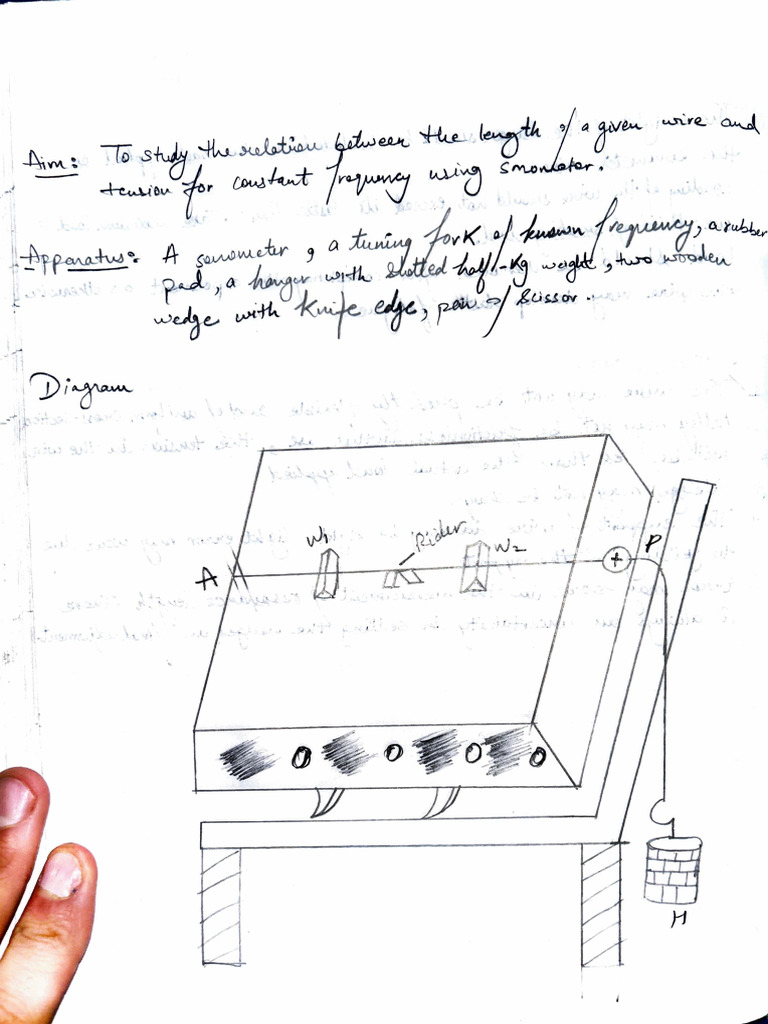 Aim: To study the relation between the length of a given wire and
tension for constant frequency using sonometer.
Apparatus: A sonometer, a tuning fork of known frequency, a rubber
pad, a hanger with slotted half-Kg weight, two wooden
wedge with knife edge, pair of scissor.
Diagram
W1
Rider
W2
A
+
P
H